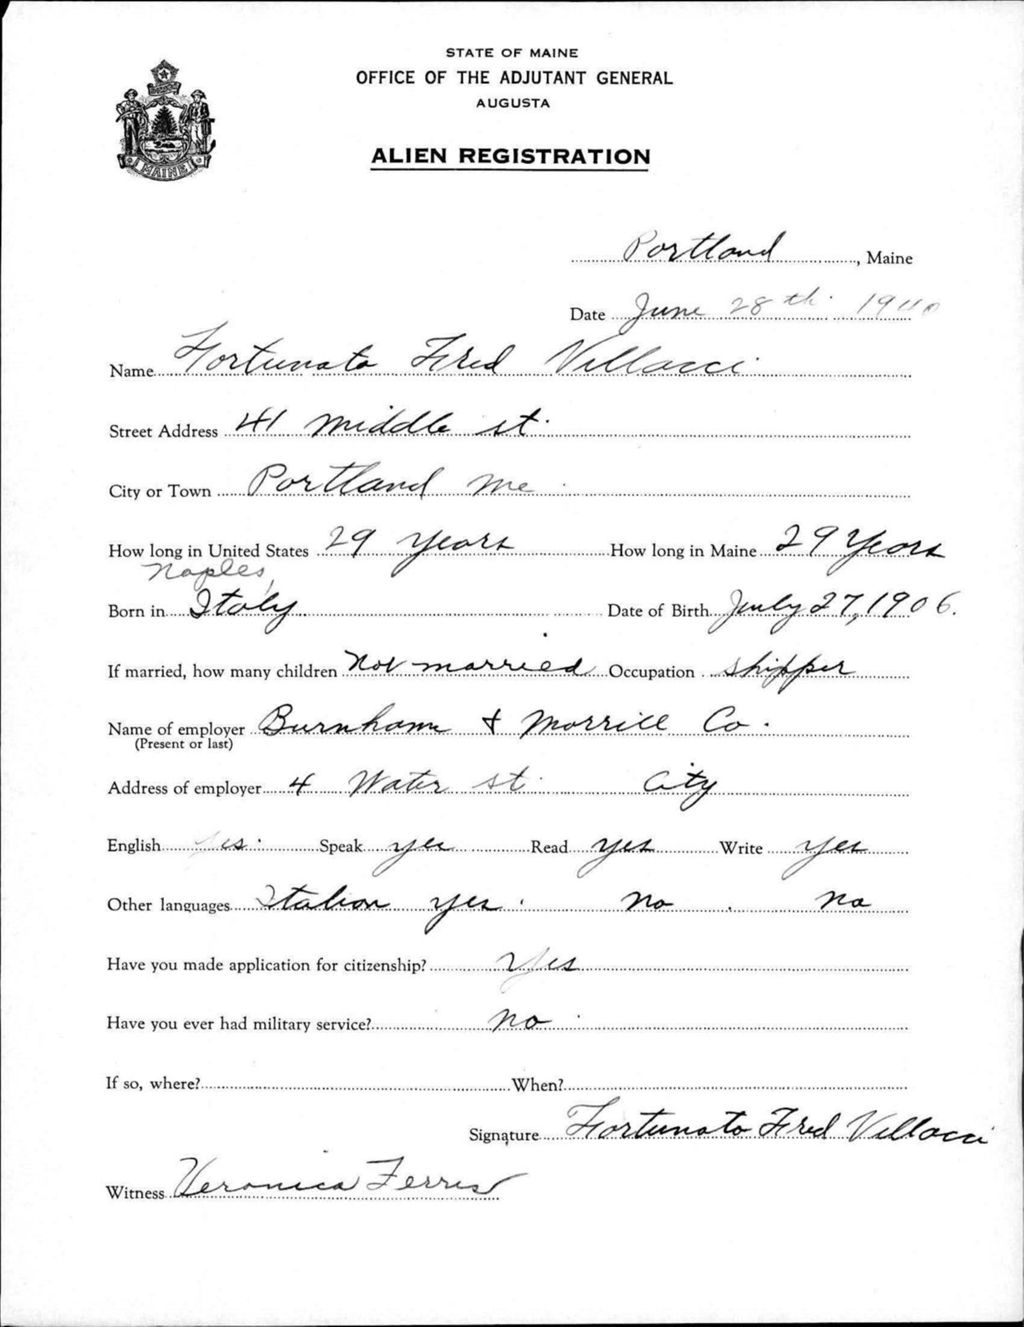 STATE OF MAINE
OFFICE OF THE ADJUTANT GENERAL
AUGUSTA
ALIEN REGISTRATION
MAINE
Portland, Maine
Date June 28th 1940
Name Fortunato Fred Villacci
Street Address 41 Middle st.
City or Town Portland Me
How long in United States 29 years How long in Maine 29 Years
Naples,
Born in Italy Date of Birth July 27, 1906.
If married, how many children Not married Occupation Shipper
Name of employer Burnham & Morrill Co.
(Present or last)
Address of employer 4 Water st. City
English yes. Speak yes Read yes Write yes
Other languages Italian yes. no. no
Have you made application for citizenship? Yes
Have you ever had military service? no.
If so, where? When?
Signature Fortunato Fred Villacci
Witness Veronica Ferris